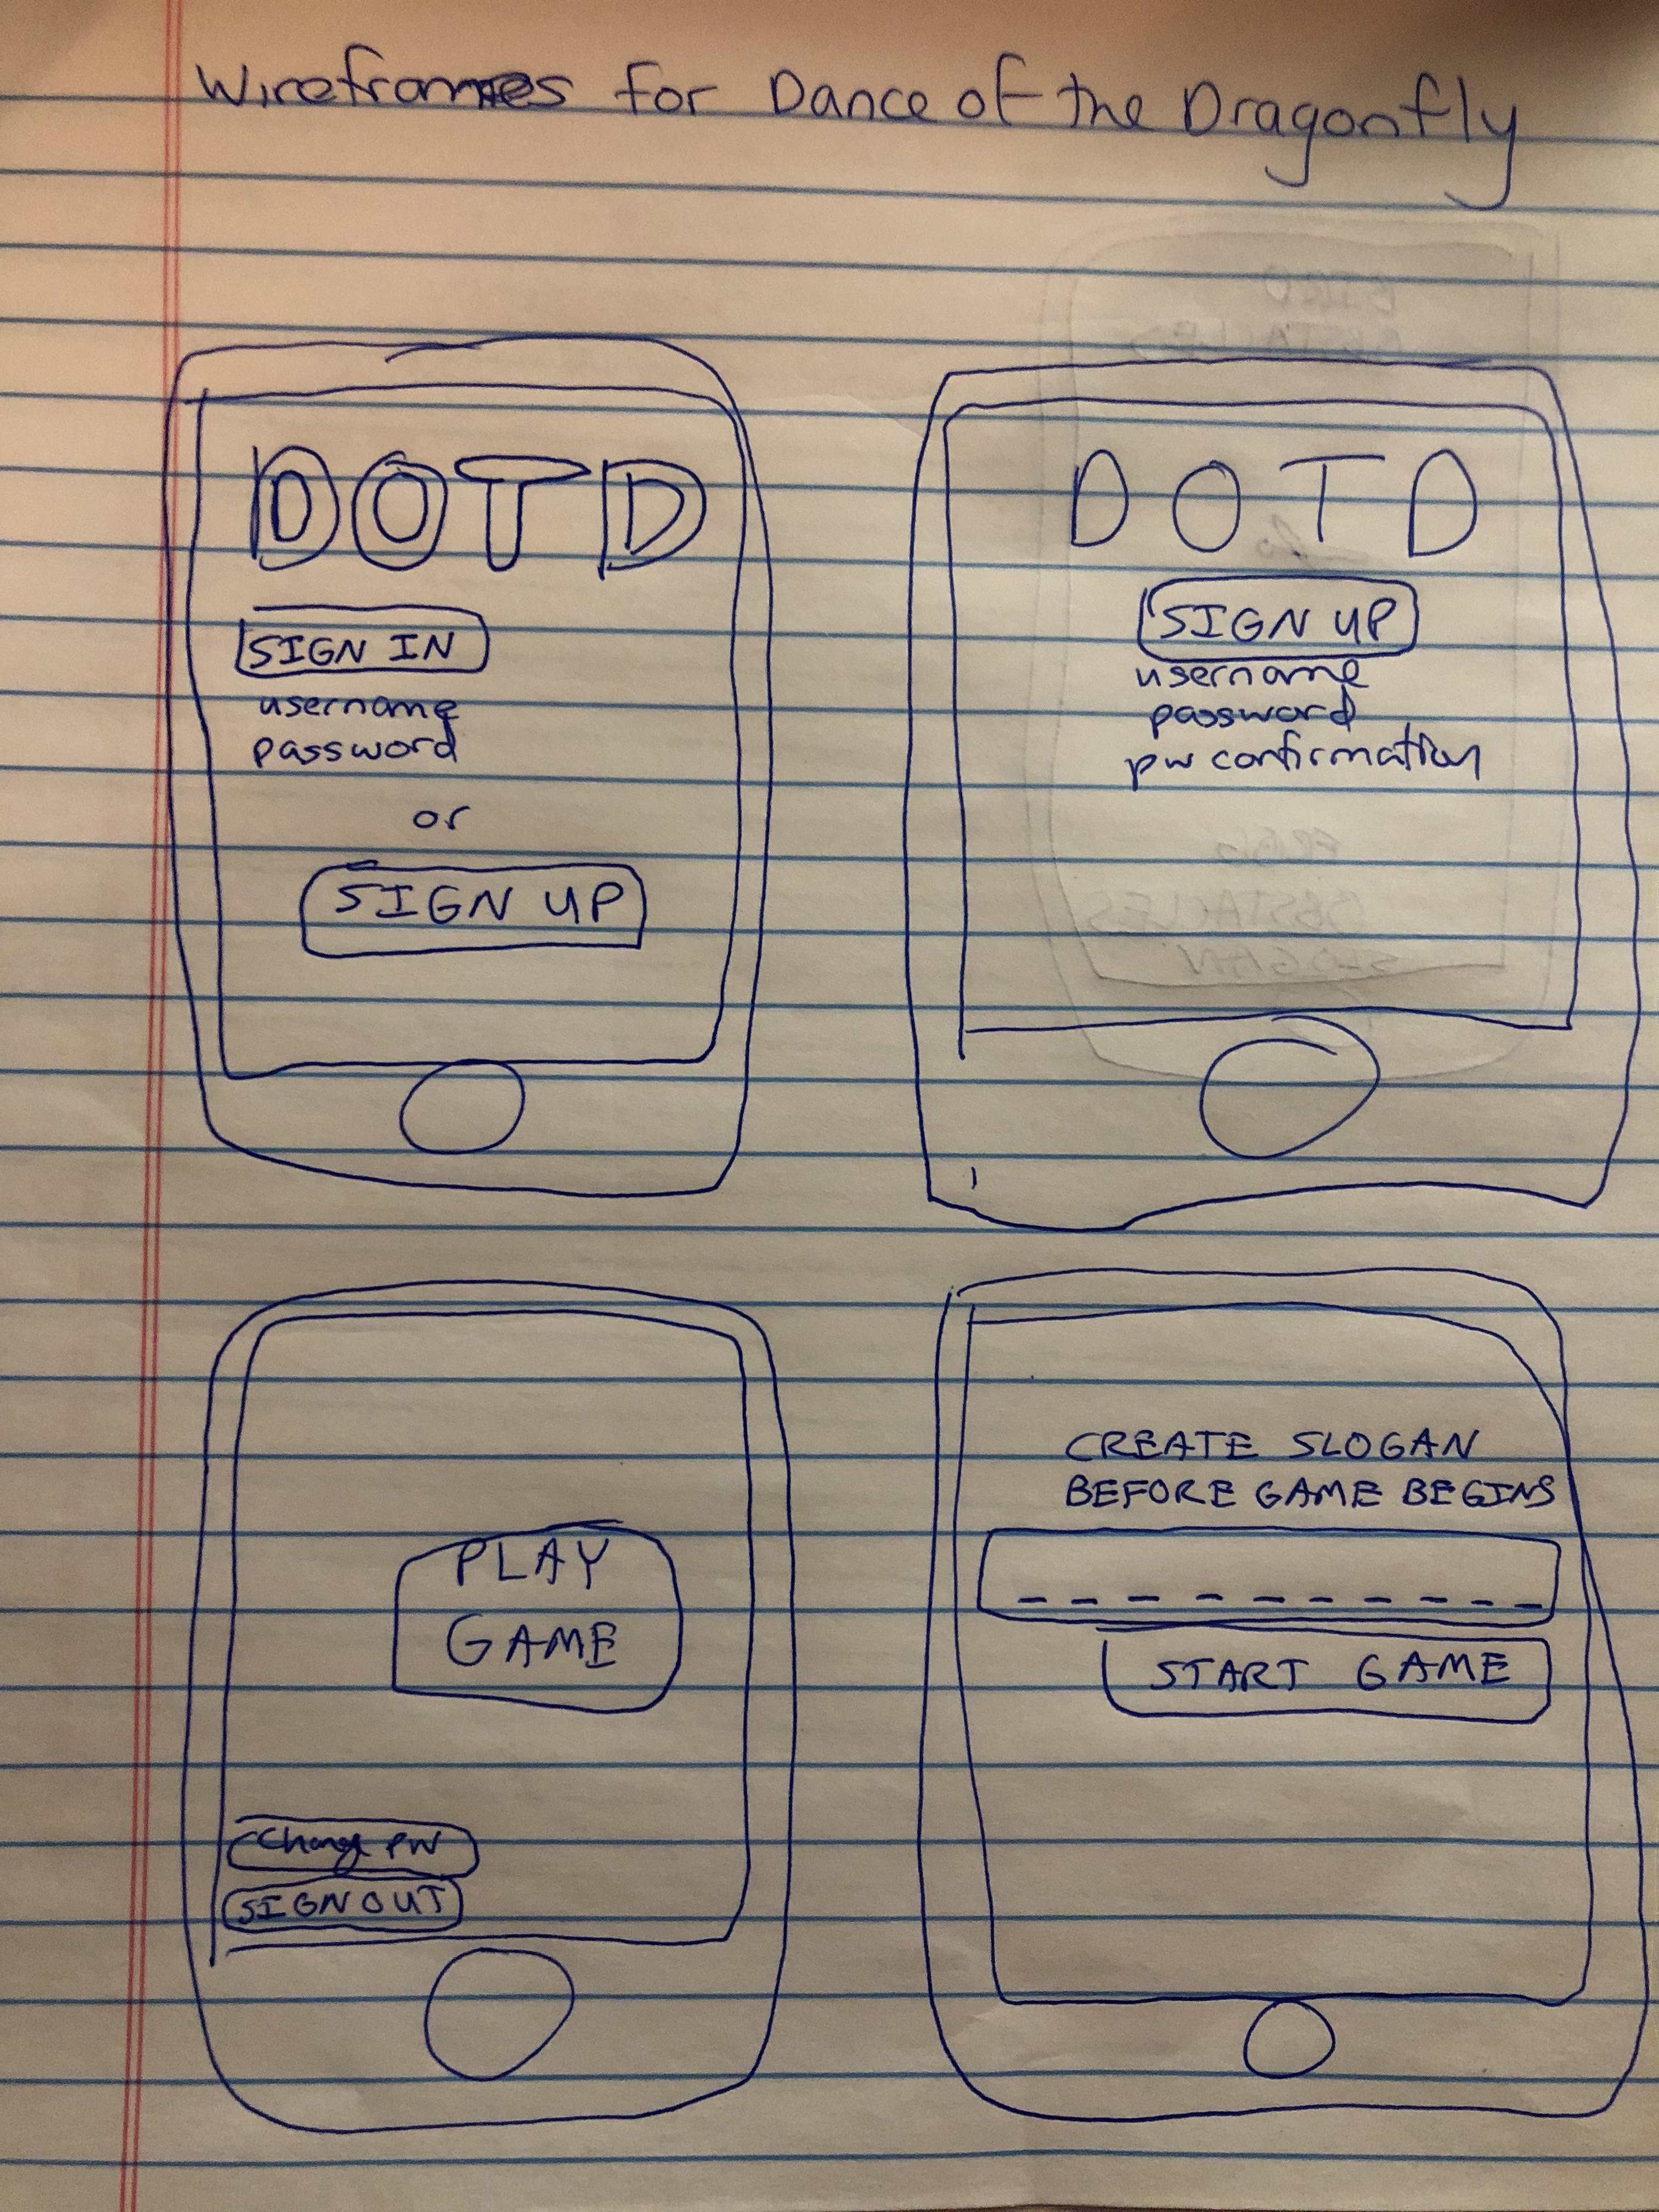 Wireframes for Dance of the Dragonfly
DOTD
SIGN IN
username
password
or
SIGN UP
DOTD
SIGN UP
username
password
pw confirmation
PLAY
GAME
Change PW
SIGN OUT
CREATE SLOGAN
BEFORE GAME BEGINS
START GAME